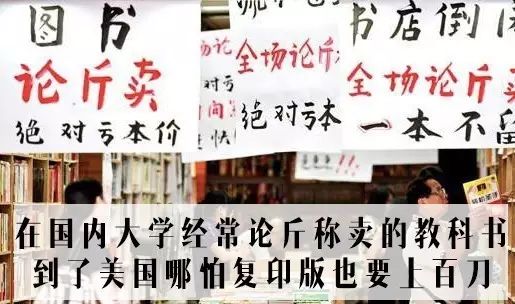 图书
论斤卖
绝对亏本价
全场论斤
绝对亏本
书店倒闭
全场论斤
一本不留
在国内大学经常论斤称卖的教科书
到了美国哪怕复印版也要上百刀